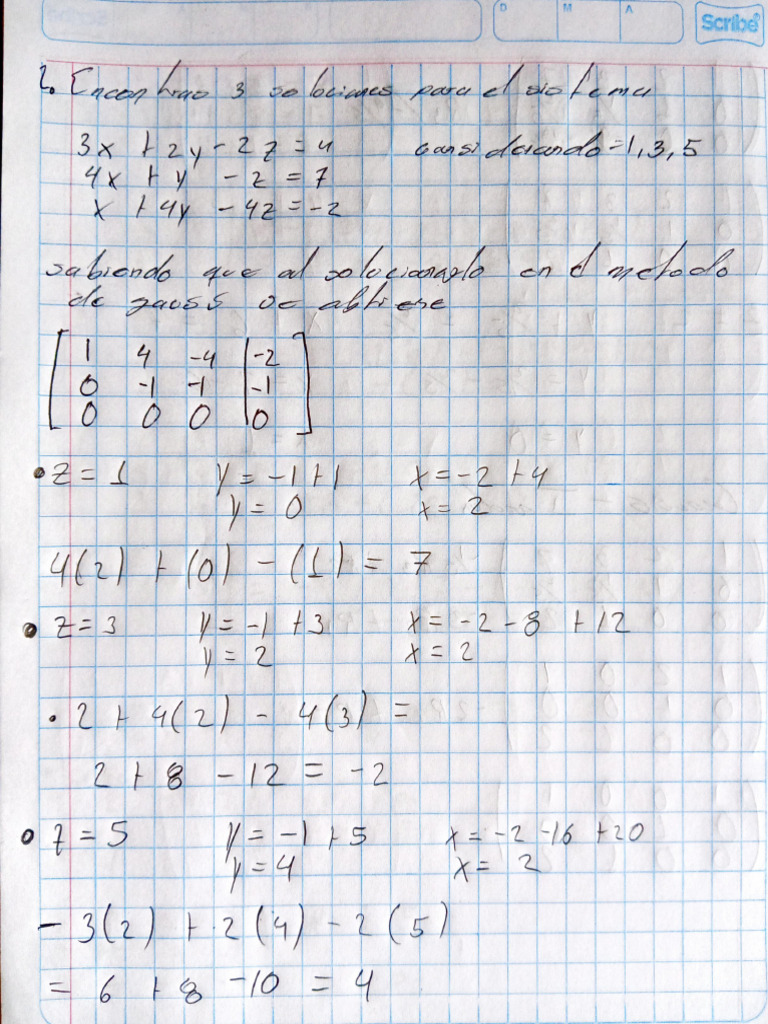 D M A Scribe
2. Encontrar 3 soluciones para el sistema
3x + 2y - 2z = 4 considerando = 1, 3, 5
4x + y - z = 7
x + 4y - 4z = -2
sabiendo que al solucionarlo en el metodo
de gauss se obtiene
1 4 -4 | -2
0 -1 -1 | -1
0 0 0 | 0
• z = 1 y = -1 + 1 x = -2 + 4
y = 0 x = 2
4(2) + (0) - (1) = 7
• z = 3 y = -1 + 3 x = -2 - 8 + 12
y = 2 x = 2
• 2 + 4(2) - 4(3) =
2 + 8 - 12 = -2
• z = 5 y = -1 + 5 x = -2 -16 + 20
y = 4 x = 2
- 3(2) + 2(4) - 2(5)
= 6 + 8 - 10 = 4